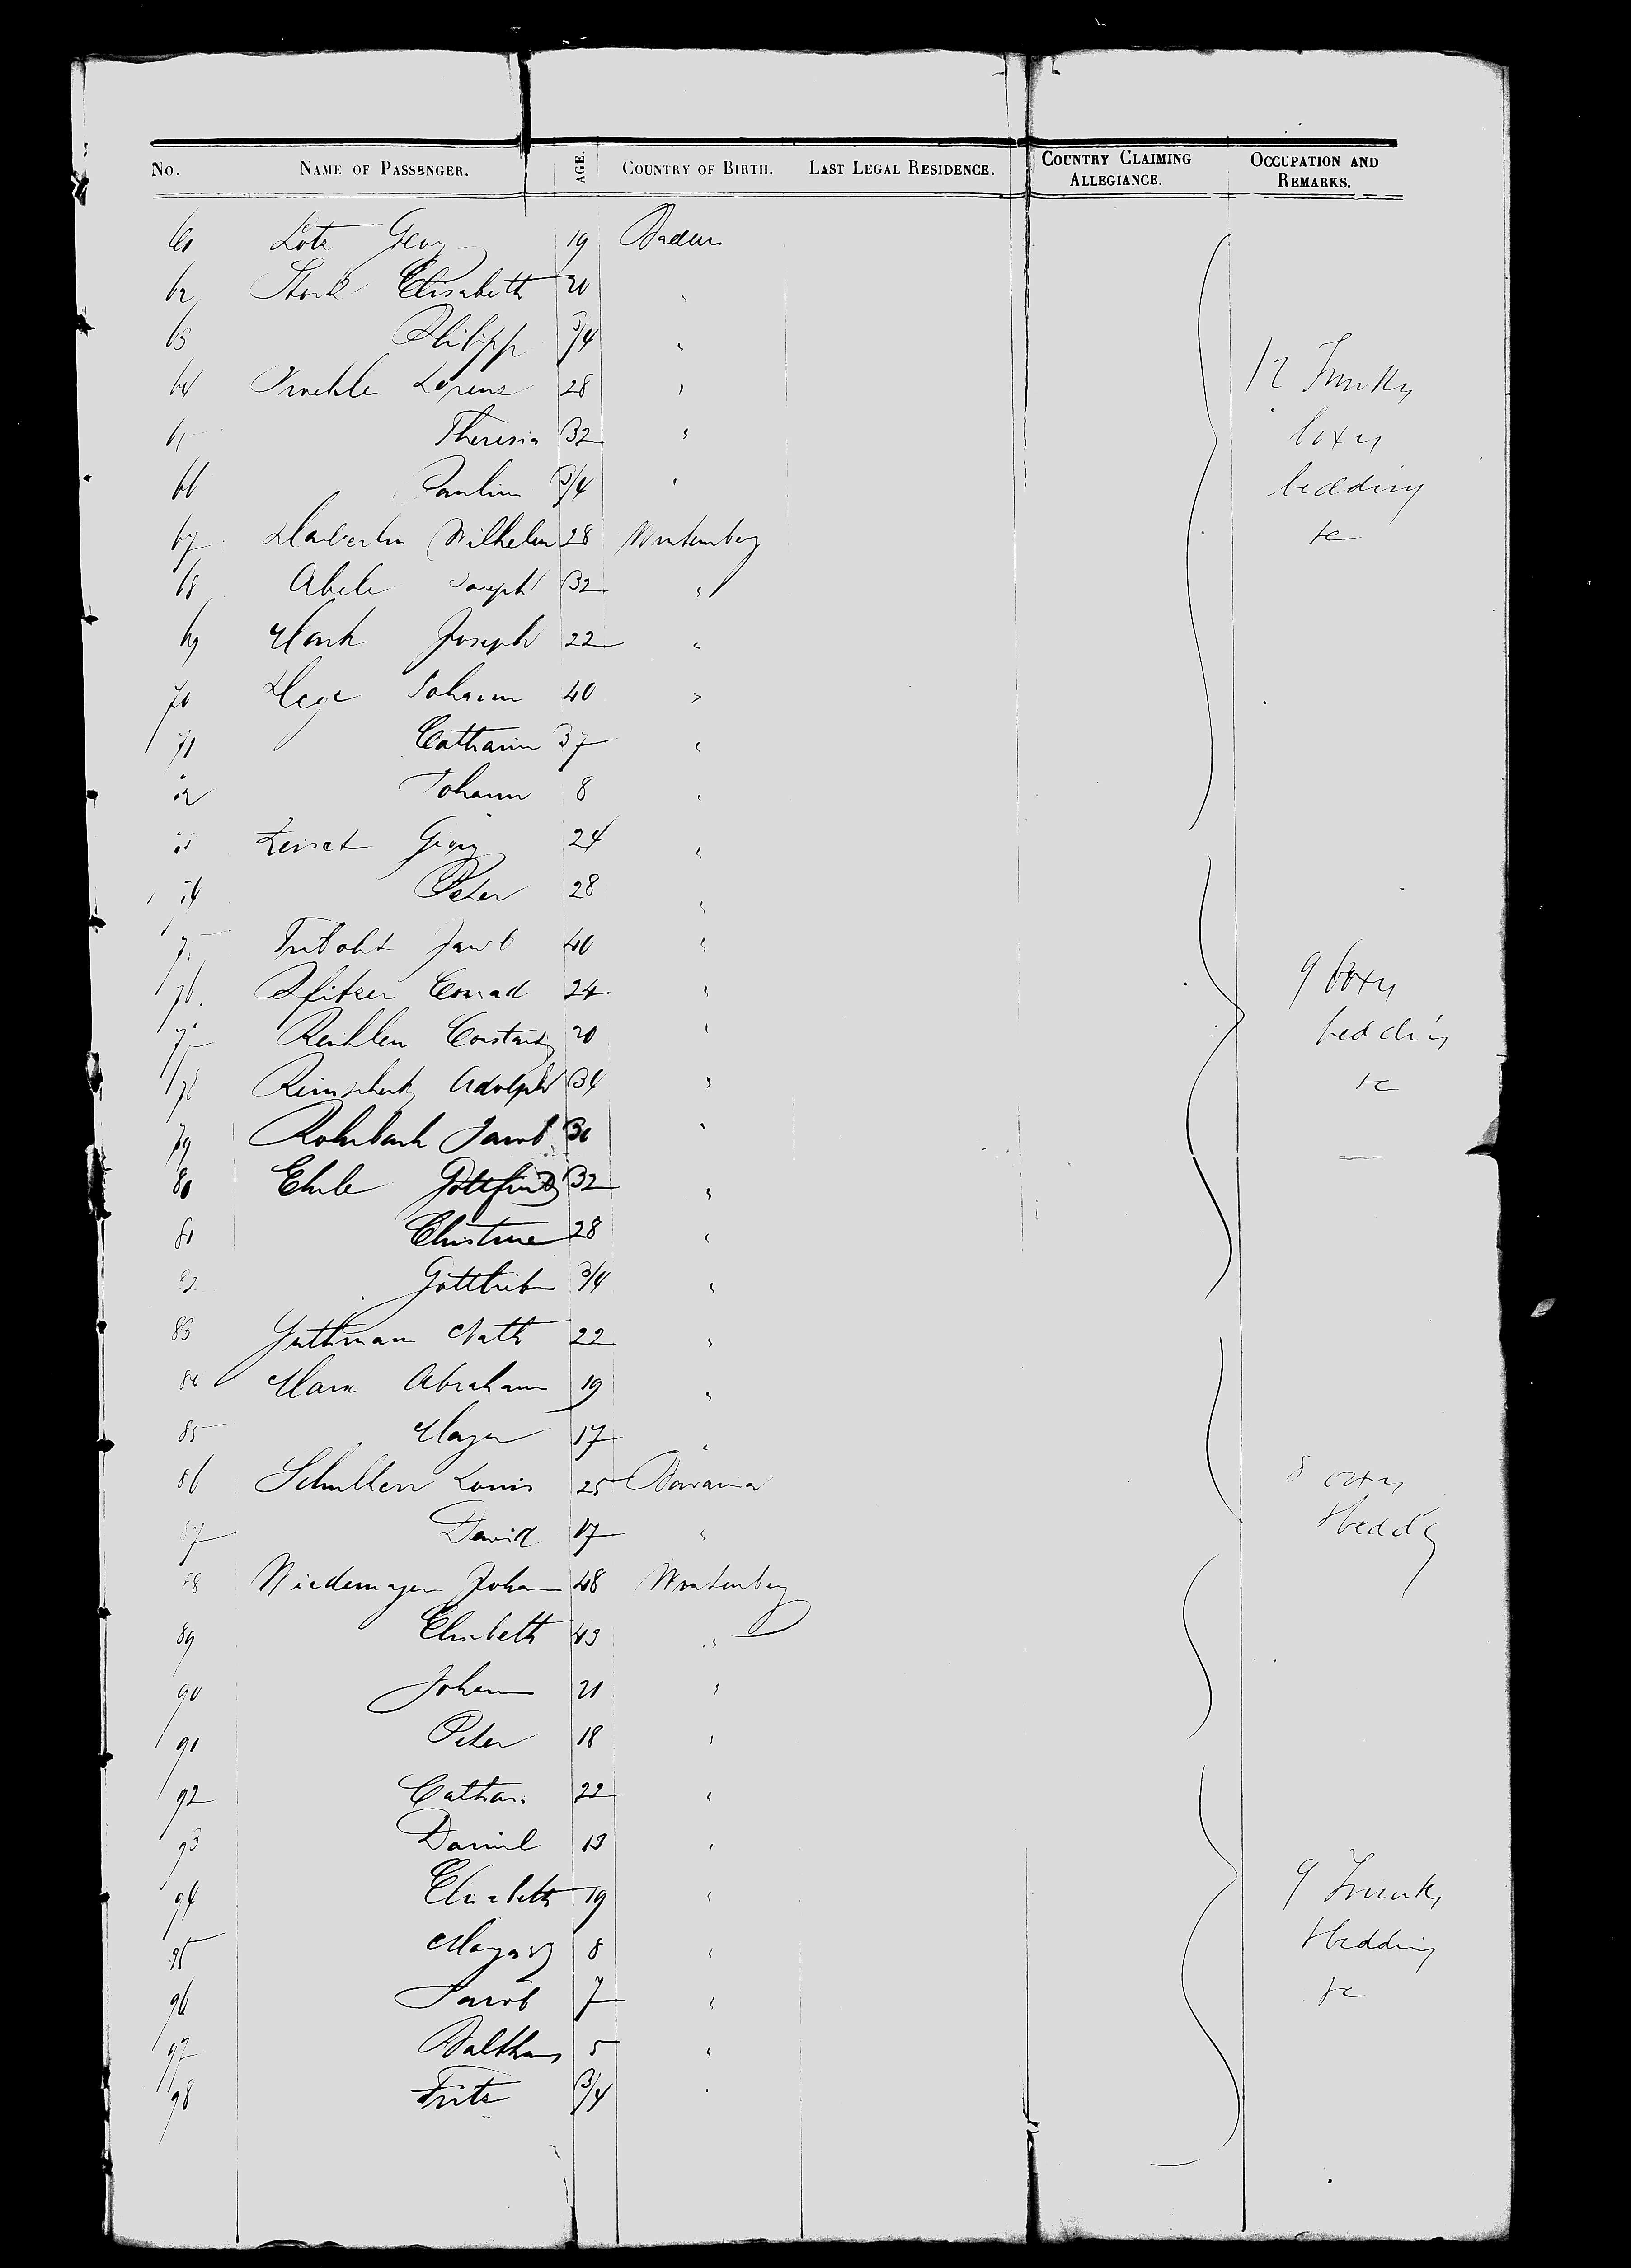 No. NAME OF PASSENGER. AGE. COUNTRY OF BIRTH. LAST LEGAL RESIDENCE. COUNTRY CLAIMING ALLEGIANCE. OCCUPATION AND REMARKS.
61 Lotz Georg 19 Baden
62 Stork Elisabeth 20 "
63 Philipp 3/4 "
64 Lorenz 28 " 12 Trunks
65 Theresia 32 " boxes
66 Paulin 3/4 " bedding
67 Haberlen Wilhelm 28 Wurtemberg &c
68 Abele Joseph 32 "
69 Mark Joseph 22 "
70 Hege Johann 40 "
71 Catharin 37 "
72 Johann 8 "
73 Zeiset Georg 24 "
74 Peter 28 "
75 Jacob 40 "
76 Pfitzer Conrad 24 " 9 boxes
77 Reihlen 20 " bedding
78 Adolph 34 " &c
79 Rohrbach Jacob "
80 Ehrle Gottfried 32 "
81 Christine 28 "
82 Gottlieb 3/4 "
83 Guttmann Nath 22 "
84 Marx Abraham 19 "
85 Mayer 17 "
86 Louis 25 Bavaria 8 boxes
87 David 17 " & bedd'g
88 Niedemayer Johan 48 Wurtemberg
89 Elisbeth 43 "
90 Johann 21 "
91 Peter 18 "
92 Cathar. 22 "
93 Daniel 13 "
94 Elisabeth 19 " 9 Trunks
95 8 " & bedding
96 Jacob 7 " &c
97 Balthas 5 "
98 Fritz 3/4 "